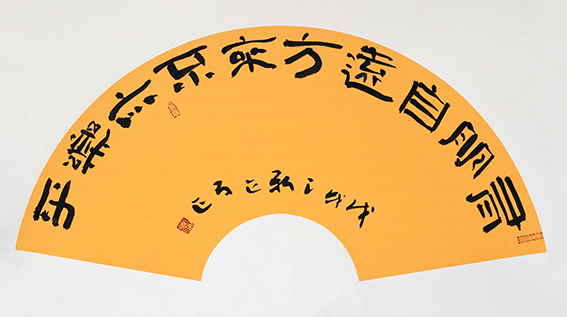 有朋自遠方來不亦樂乎
戊戌